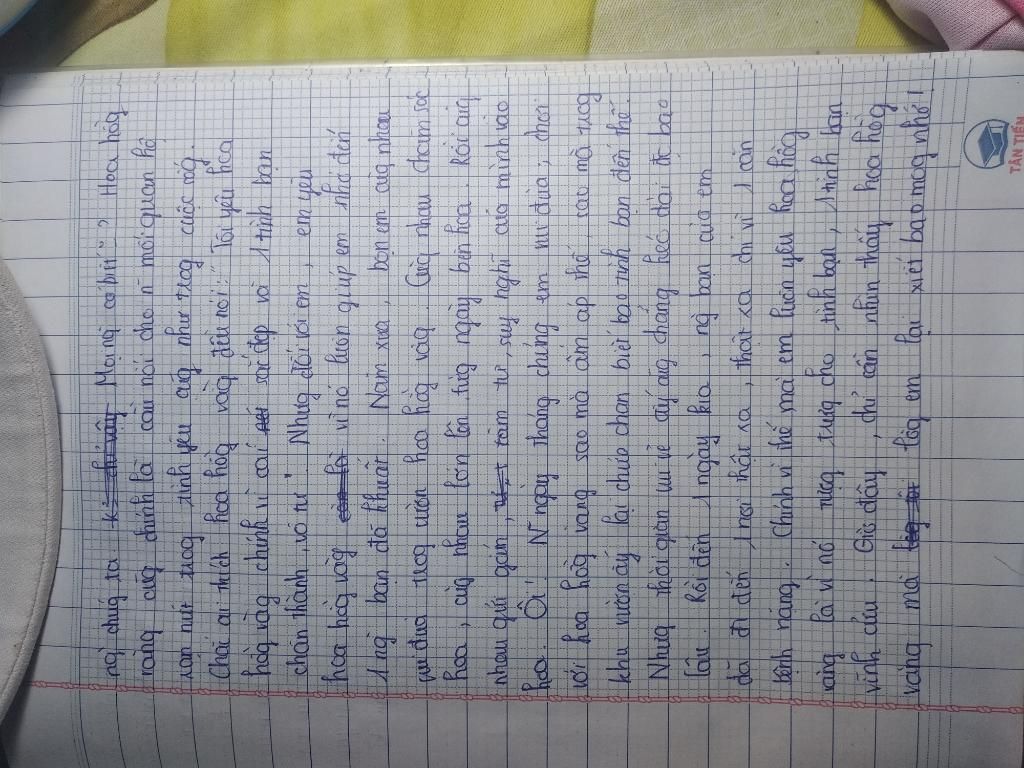 nó chúg ta Mọi ng có biết ? Hoa hồg
vàng cũg chính là câu nói cho n mối quan hệ
rạn nứt trog tình yêu cũg như trog cuộc sốg.
Chả ai thích hoa hồg vàg đâu nói! "Tôi yêu hoa
hồg vàg chính vì cái sắc đẹp và 1 tình bạn
chân thành, vô tư". Nhưg đối với em, em yêu
hoa hồg vàg vì nó luôn giúp em nhớ đến
1 ng bạn đã khuất. Năm xưa, bọn em cùg nhau
vui đùa trog vườn hoa hồg vàg. Cùg nhau chăm sóc
hoa, cùg nhau lớn lên từg ngày bên hoa. Rồi cùg
nhau gửi gắm, tâm tư, suy nghĩ của mình vào
hoa. Ôi! N ngày tháng chúng em vui đùa, chơi
với hoa hồg vàng sao mà ấm áp thế, sao mà trog
khu vườn ấy lại chứa chan biết bao tình bạn đến thế.
Nhưg thời gian vui vẻ ấy cũg chẳng kéo dài đc bao
lâu. Rồi đến 1 ngày kia, ng bạn của em
đã đi đến 1 nơi thật xa, thật xa chỉ vì 1 căn
bệnh nặng. Chính vì thế mà em luôn yêu hoa hồg
vàng bởi vì nó tượng trưng cho tình bạn, 1 tình bạn
vĩnh cửu. Giờ đây, chỉ cần nhìn thấy hoa hồg
vàng mà lòg em lại xiết bao mog nhớ!
TÂN TIẾN